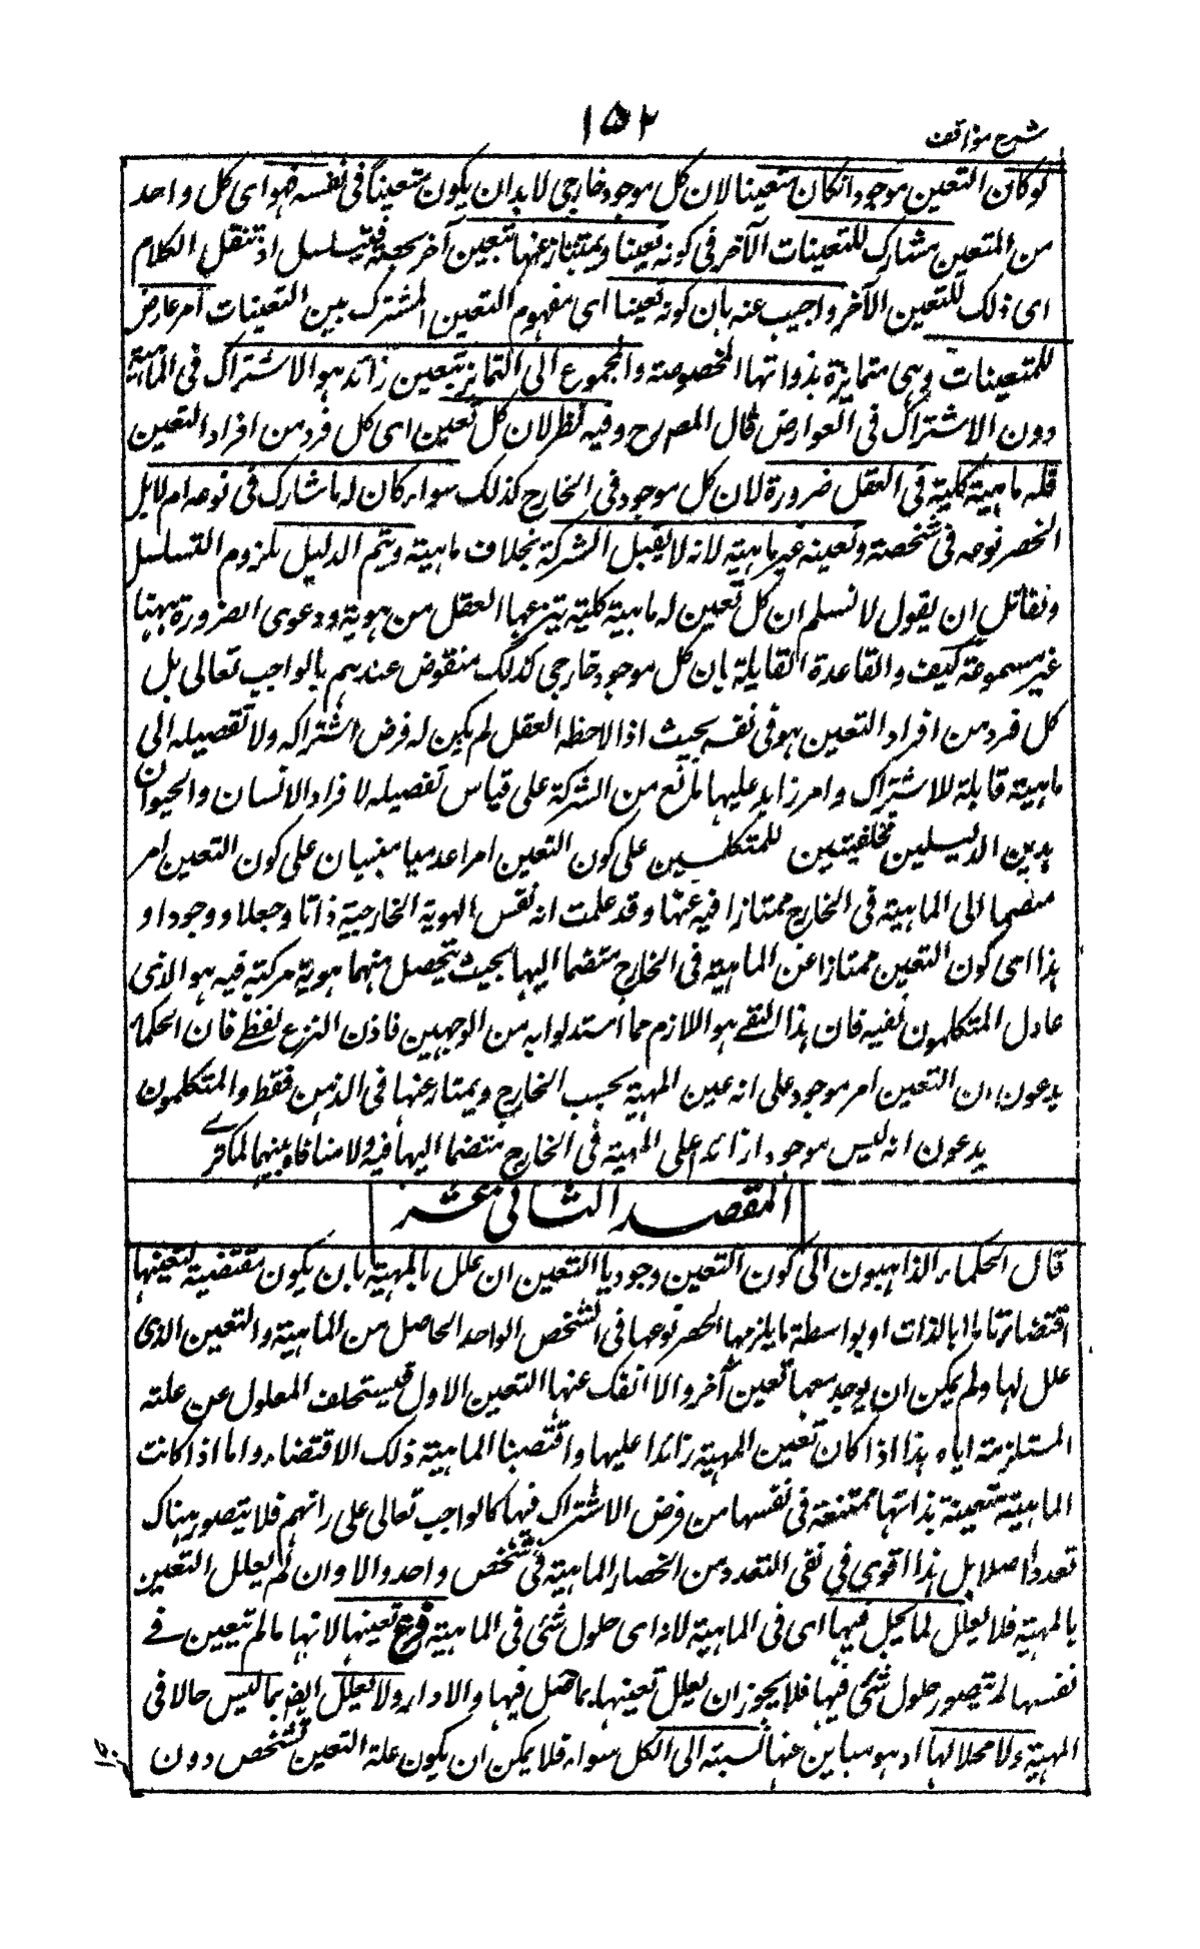 ١٥٢
شرح مواقف
لو كان التعين موجودا لكان متعينا لان كل موجود خارجى لا بد ان يكون متعينا فى نفسه فهو اى كل واحد
من المتعين مشارك للتعينات الآخر فى كونه تعينا ويمتاز عنها بتعين آخر يخصه فيتسلسل اذ ننقل الكلام
اى ذلك للتعين الآخر واجيب عنه بان كونه تعينا اى مفهوم التعين المشترك بين التعينات امر عارض
للمتعينات وهى متمايزة بذواتها المخصوصة والمجموع الى التمايز بتعين زائد هو الاشتراك فى الماهية
دون الاشتراك فى العوارض قال المصرح وفيه نظر لان كل تعين اى كل فرد من افراد التعين
فله ماهية كلية فى العقل ضرورة لان كل موجود فى الخارج كذلك سواء كان له ما شارك فى نوعه ام لا بل
انحصر نوعه فى شخصه وتعينه غير ماهيته لانه لا يقبل الشركة بخلاف ماهيته ويتم الدليل بلزوم التسلسل
ولقائل ان يقول لا نسلم ان كل تعين له ماهية كلية ينتزعها العقل من هويته ودعوى الضرورة ههنا
غير مسموعة كيف والقاعدة القايلة بان كل موجود خارجى كذلك منقوض عندهم بالواجب تعالى بل
كل فرد من افراد التعين هو فى نفسه بحيث اذا لاحظه العقل لم يكن له فرض اشتراكه ولا تفصيله الى
ماهية قابلة للاشتراك وامر زايد عليها مانع من الشركة على قياس تفصيله لافراد الانسان والحيوان
بدين الدليلين للمتكلمين على كون التعين امرا عدميا مبنيان على كون التعين امر
منضما الى الماهية فى الخارج ممتازا فيه عنها وقد علمت انه نفس الهوية الخارجية ذاتا وجعلا ووجودا و
هذا اى كون التعين ممتازا عن الماهية فى الخارج منضما اليها بحيث يتحصل منهما هوية مركبة فيه هو الذى
عادل المتكلمون نفيه فان هذا النفى هو اللازم مما استدلوا به من الوجهين فاذن النزع لفظى فان الحكماء
يدعون ان التعين امر موجود على انه عين المهية بحسب الخارج ويمتاز عنها فى الذهن فقط والمتكلمون
يدعون انه ليس موجودا زائدا على المهية فى الخارج منضما اليها فيه ولا منافاة بينهما
المقصد الثانى عشر
قال الحكماء الذاهبون الى كون التعين وجوديا التعين ان علل بالمهية بان يكون مقتضية لتعينها
اقتضاء تاما بالذات او بواسطة ما يلزمها انحصر نوعها فى الشخص الواحد الحاصل من الماهية والتعين الذى
علل لها ولم يمكن ان يوجد معها تعين آخر والا انفك عنها التعين الاول فيستخلف المعلول عن علته
المستلزمة اياه هذا اذا كان تعين المهية زائدا عليها واقتضينا الماهية ذلك الاقتضاء واما اذا كانت
الماهية متعينة بذاتها ممتنعة فى نفسها من فرض الاشتراك فيها كالواجب تعالى على رائهم فلا يتصور هناك
تعدد اصلا بل هذا اقوى فى نفى التعدد من انحصار الماهية فى شخص واحد والا وان لم يعلل التعين
بالمهية فلا يعلل لما يحل فيها اى فى الماهية لانه اى حلول شئ فى الماهية فرع تعينها لانها ما لم تتعين فى
نفسها لم يتصور حلول شئ فيها فلا يجوز ان يعلل تعينها بما حل فيها والا دار ولا يعلل ايضا بما ليس حالا فى
المهية ولا محلا لها اذ هو مباين عنها نسبته الى الكل سواء فلا يمكن ان يكون علة التعين تشخص دون